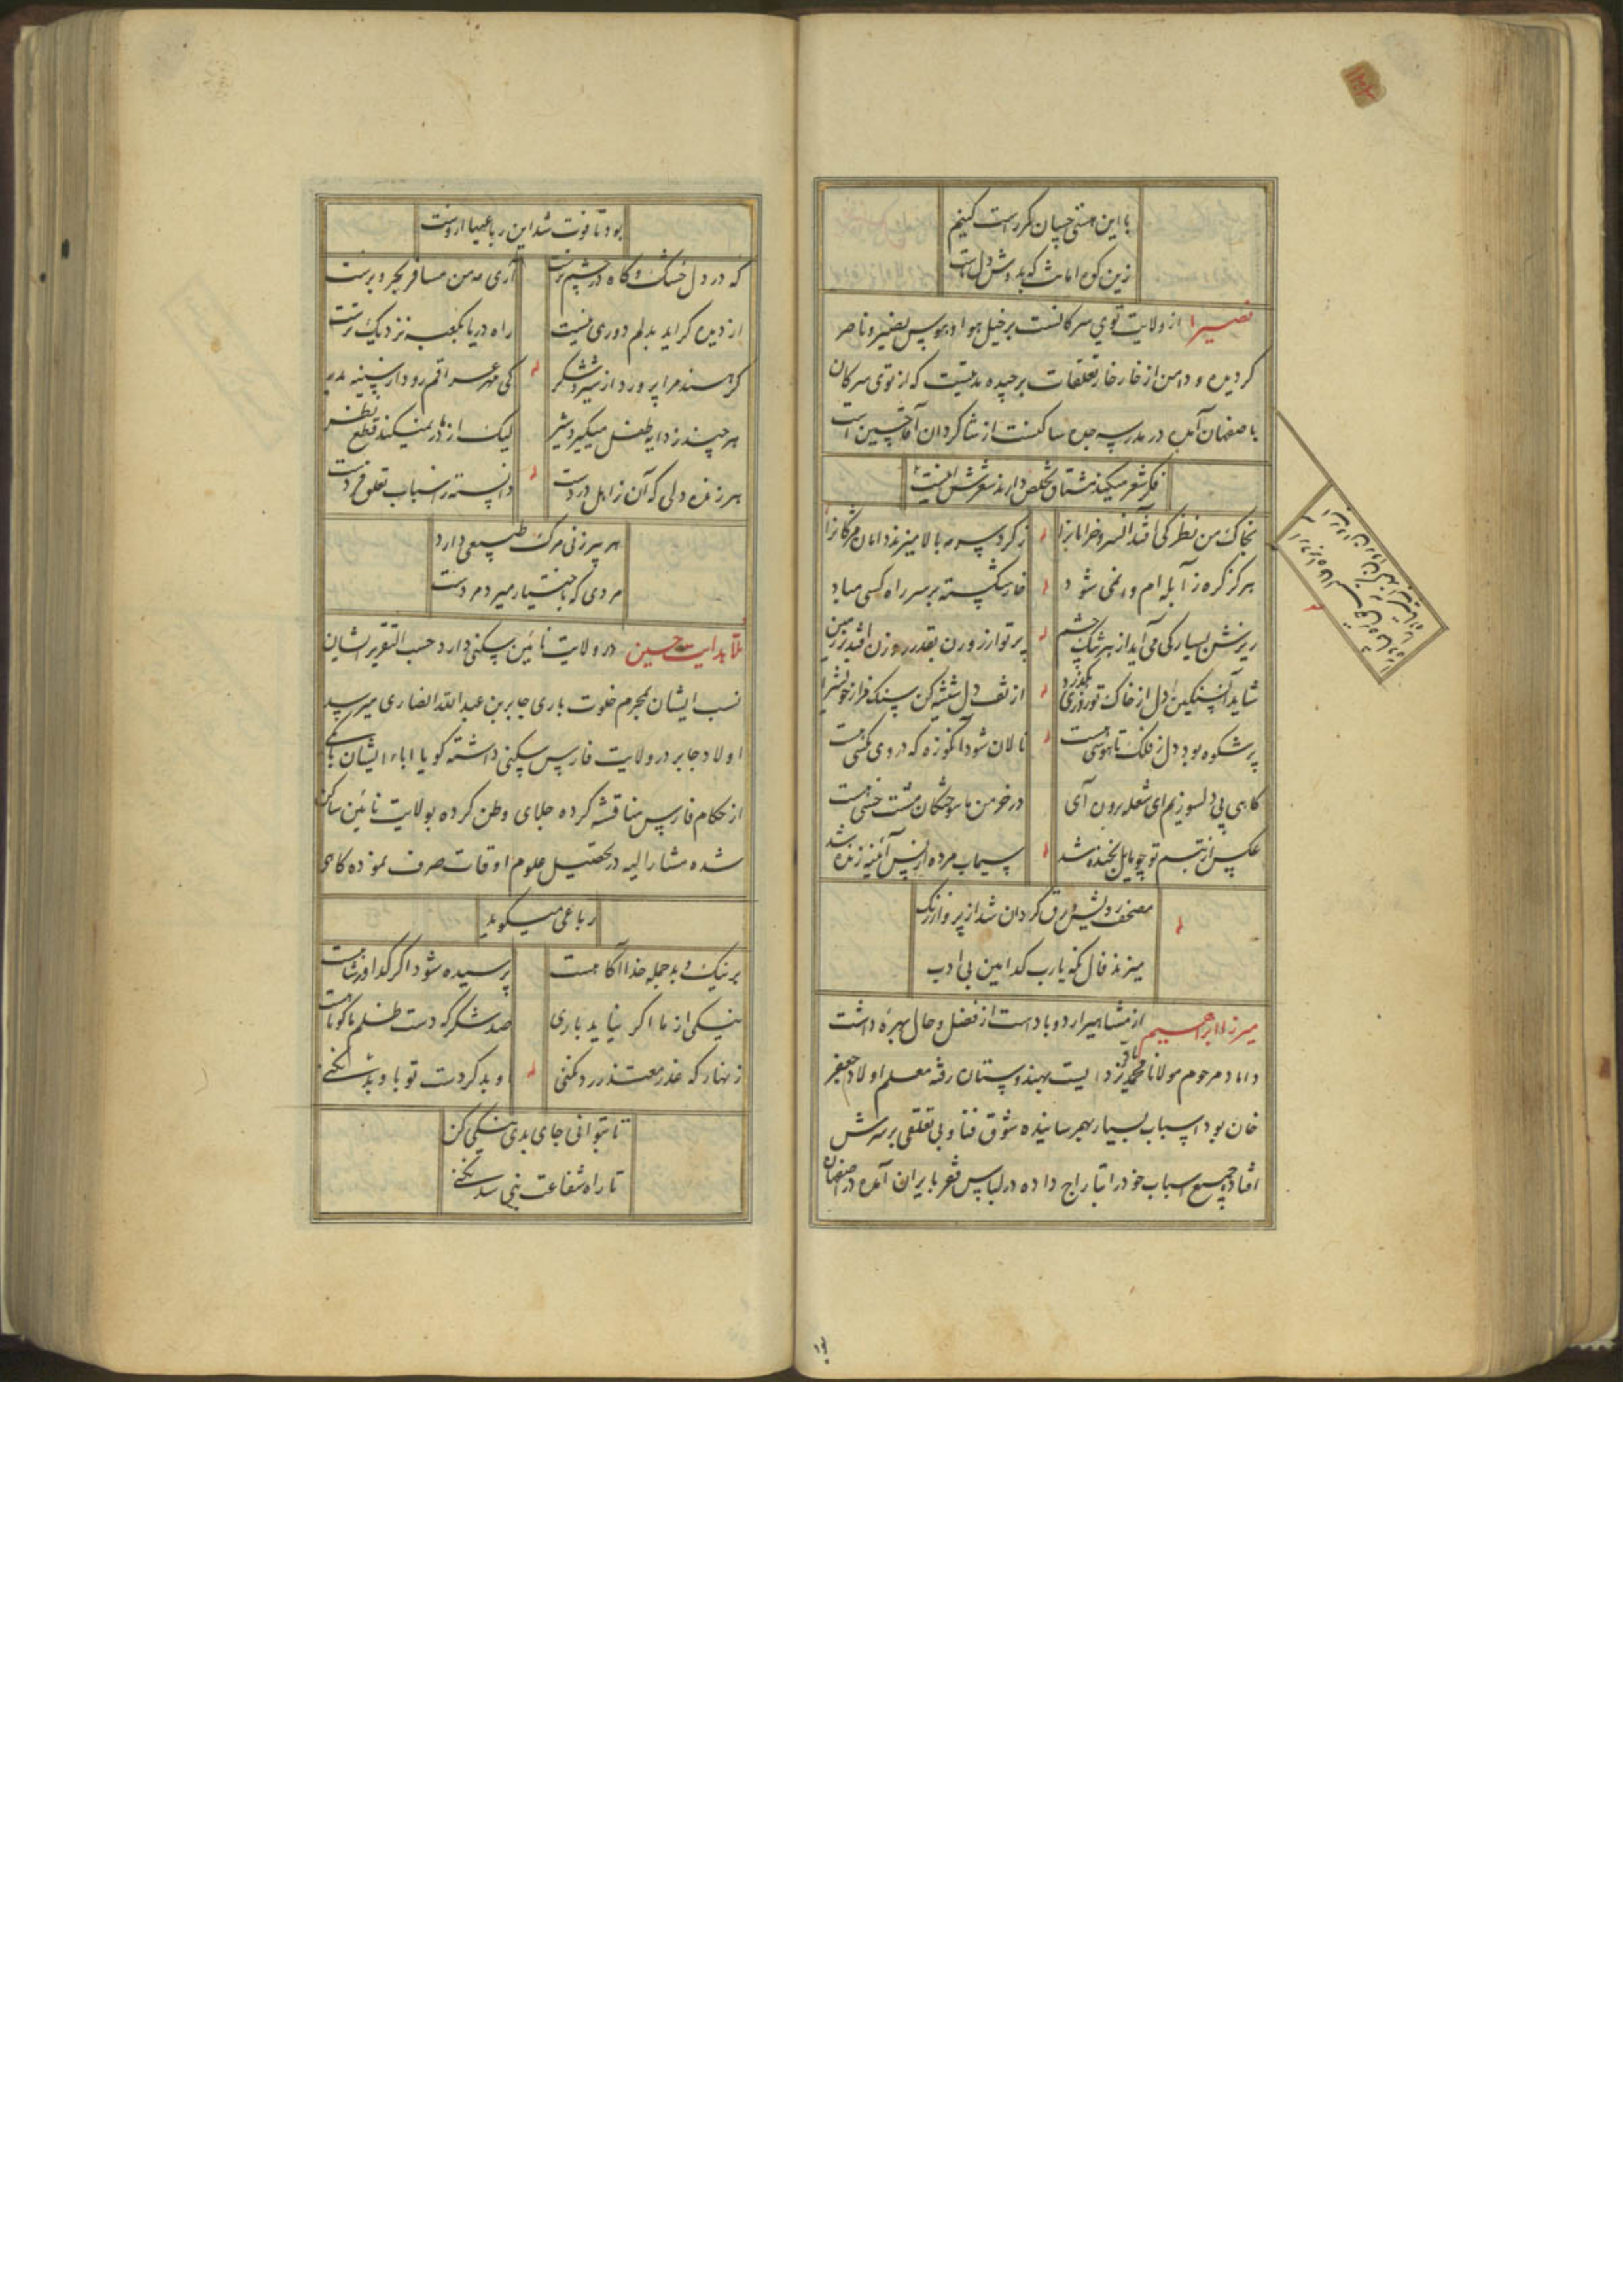 با این هستی چسان کمر راست کنیم
زین کوه امانت که بدوش دل ماست
نصیرا از ولایت توی سرکانست بر خیل هوا و هوس نصیر و ناصر
کردیده و دامن از خار خار تعلقات برچیده مدتیست که از توی سرکان
باصفهان آمده در مدرسه جده ساکنست از شاکردان آقا حسین است
فکر شعر میکند مشتاق تخلص دارند شعرش اینست
بخاک من نظر کی افتد آنسرو خرامانرا
ز کرد سرمه بالا میزند دامان مژکانرا
هرکز کره ز آبله ام وا نمی شود
خار شکسته بر سر راه کسی مباد
ریزش بسیار کی می آید از هر تنک چشم
پرتو از روزن بقدر روزن افتد بر زمین
شاید آن سنکین دل از خاک تو روزی بکذرد
از تف دل شیشه کن سنک مزار خویش را
پر شکوه بود دل ز فلک تا هوسی هست
نالان شود آنکوزه که در وی مکسی هست
کاهی پی دلسوزیم ای شعله برون آی
در خرمن ما سوختکان مشت خسی هست
عکس از تبسم تو چو مایل بخنده شد
سیماب مرده از پس آئینه زنده شد
مصحف رویش ورق کردان شد از پرواز رنک
میزند فال نکه یارب کدامین بی ادب
میرزا ابراهیم از مشاهیر اردوباد است از فضل و حال بهره داشت
داماد مرحوم مولانا محمد باقر یزدایست بهندوستان رفته معلم اولاد جعفر
خان بود اسباب بسیار بهم رسانیده شوق فنا و بی تعلقی بر سرش
افتاده جمیع اسباب خود را بتاراج داده در لباس فقر بایران آمده در اصفهان
بود تا فوت شد این رباعیها ازوست
که در دل خشک و کاه در چشم ترست
آری مه من مسافر بحر و برست
از دیده کر آید بدلم دوری نیست
راه دریا بکعبه نزدیک ترست
کی مهر عراقم رود از سینه بدر
هر چند ز دایه طفل میکیرد شیر
لیک از مادر نمیکند قطع نظر
هر زنده دلی که آن ز اهل دردست
دانسته ز اسباب تعلق فردست
هر پیرزنی مرک طبیعی دارد
مردی که باختیار میرد مردست
ملا هدایت حسین در ولایت نائین سکنی دارد حسب التقریر ایشان
نسب ایشان بمحرم خلوت باری جابر بن عبدالله انصاری میرسد
اولاد جابر در ولایت فارس سکنی داشته کویا اباء ایشان
از حکام فارس مناقشه کرده جلای وطن کرده بولایت نائین ساکن
شده مشارالیه در تحصیل علوم اوقات صرف نموده کاهی
رباعی میکوید
بر نیک و بد جمله خدا آکاهست
پرسیده شود اکر کدا ور شاهست
نیکی از ما اکر نیاید باری
صد شکر که دست ظلم ما کوتاهست
زنهار که عذر معتذر رد نکنی
او بد کردست تو با و بد نکنی
تا بتوانی جای بدی نیکی کن
تا راه شفاعت نبی سد نکنی